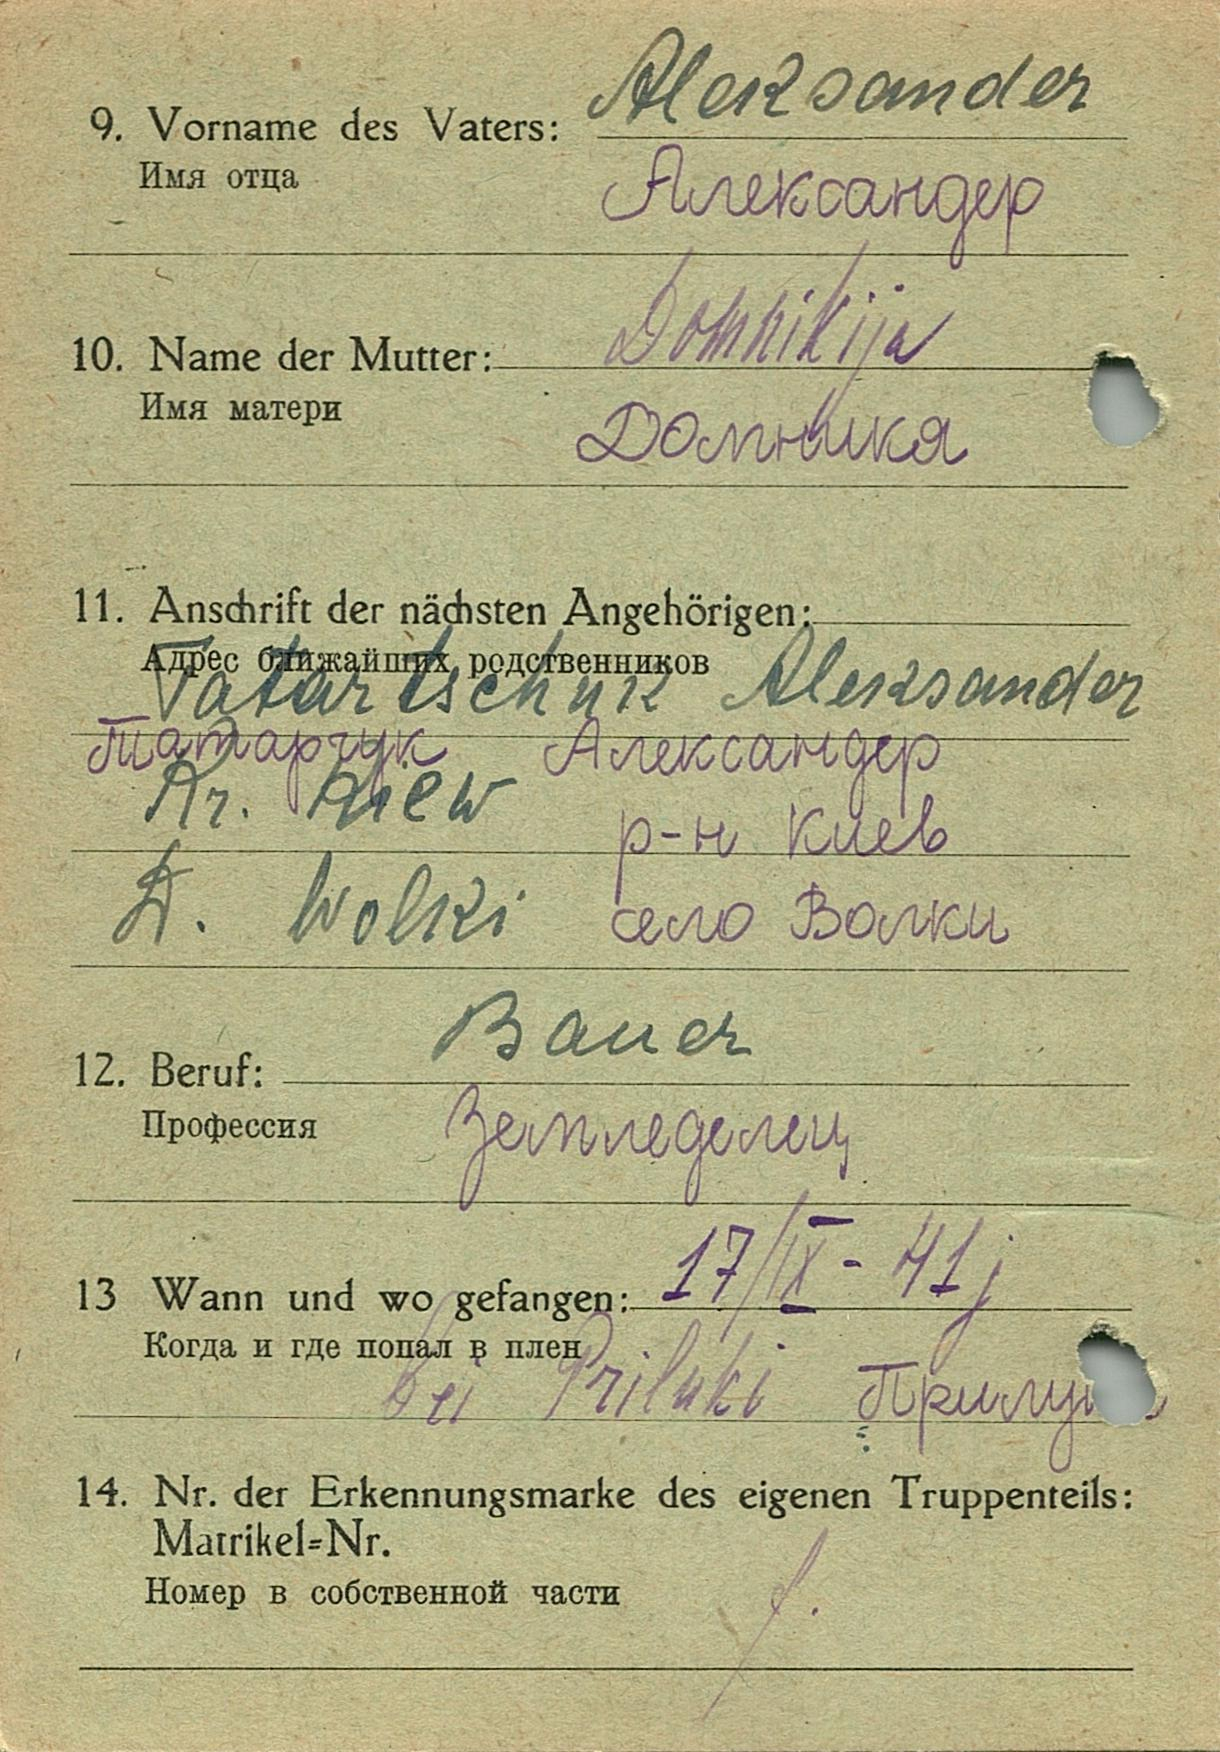 9. Vorname des Vaters: Aleksander
Имя отца Александер
10. Name der Mutter: Domnikija
Имя матери Домника
11. Anschrift der nächsten Angehörigen:
Адрес ближайших родственников
Tatartschuk Aleksander
Татарчук Александер
Kr. Kiew р-н Киев
D. Wolki село Волки
12. Beruf: Bauer
Профессия Земледелец
13 Wann und wo gefangen: 17/IX - 41 j
Когда и где попал в плен
bei Priluki
14. Nr. der Erkennungsmarke des eigenen Truppenteils:
Matrikel=Nr.
Номер в собственной части